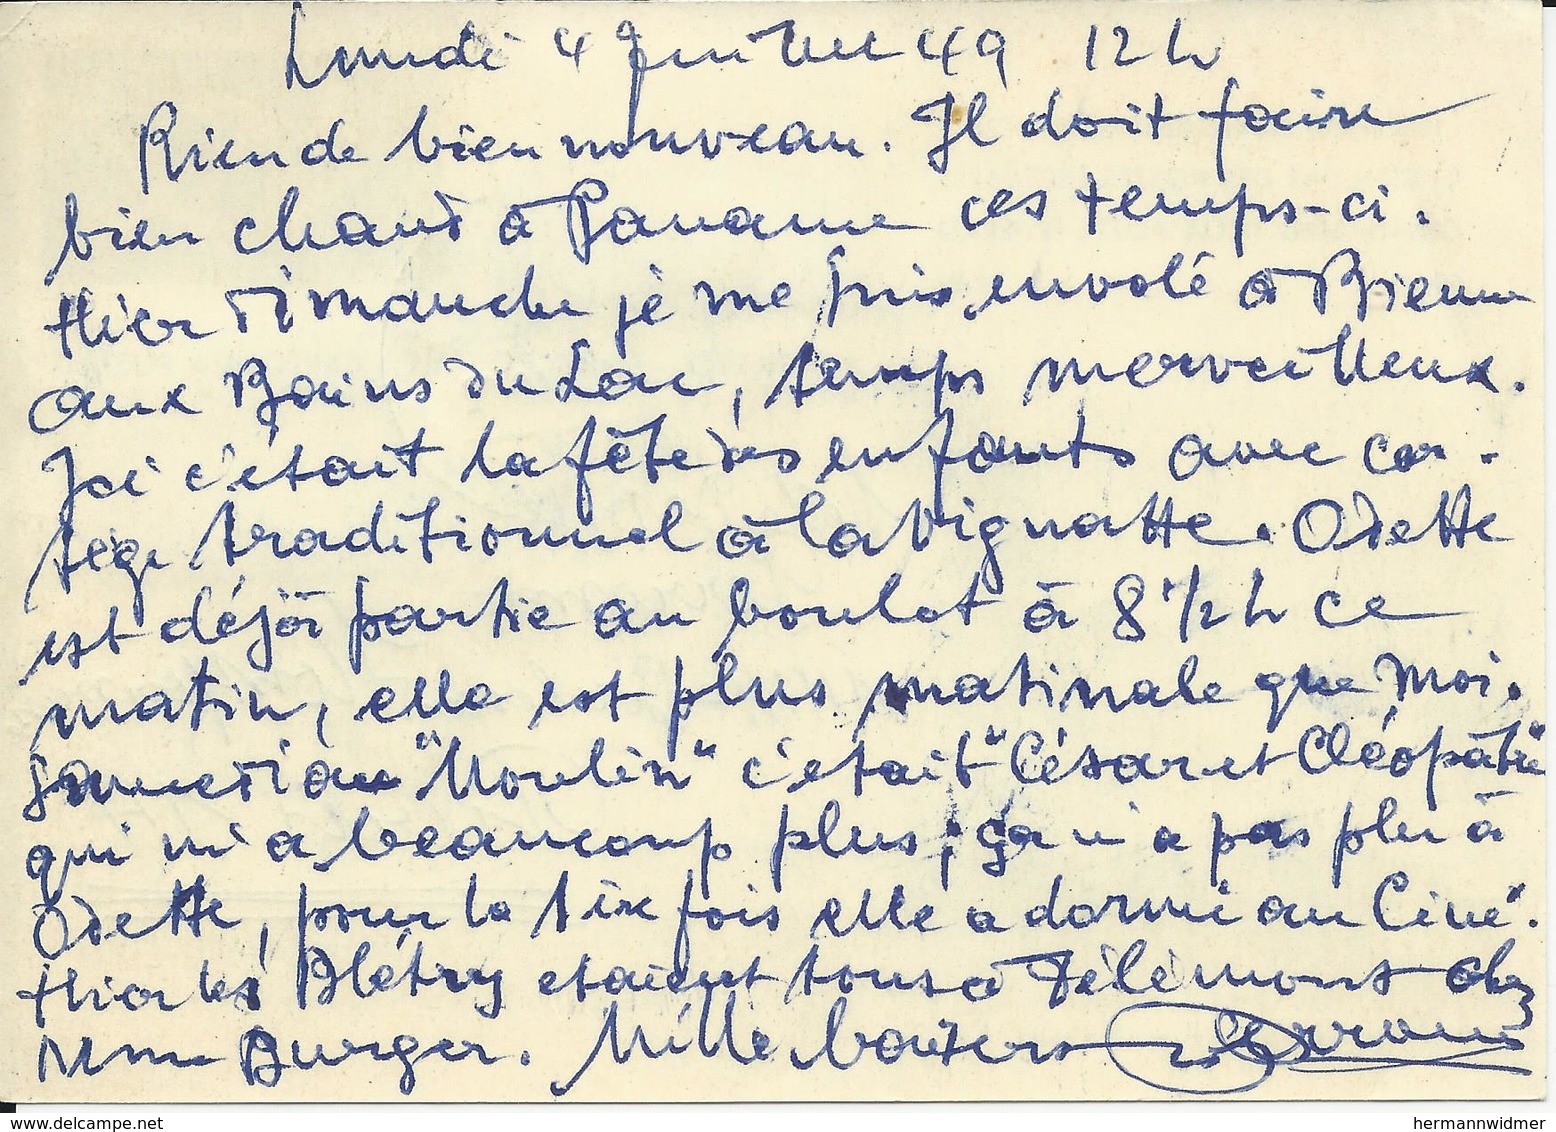 Lundi 4 Juillet 49 12 h
Rien de bien nouveau. Il doit faire
bien chaud à Paname ces temps-ci.
Hier dimanche je me suis envolé à Bienne
aux Bains du Lac, temps merveilleux.
Ici c'était la fête des enfants avec cor-
tège traditionnel à la Vignatte. Odette
est déjà partie au boulot à 8 1/2 h ce
matin, elle est plus matinale que moi.
Samedi au "Moulin" c'était "César et Cléopâtre"
qui m'a beaucoup plus; ça n'a pas plu à
Odette, pour la 1ix fois elle a dormi au Ciné.
Hier les Blétry etaient tous à Félimont chez
Mme Burger. Mille baisers
hermannwidmer
delcampe.net